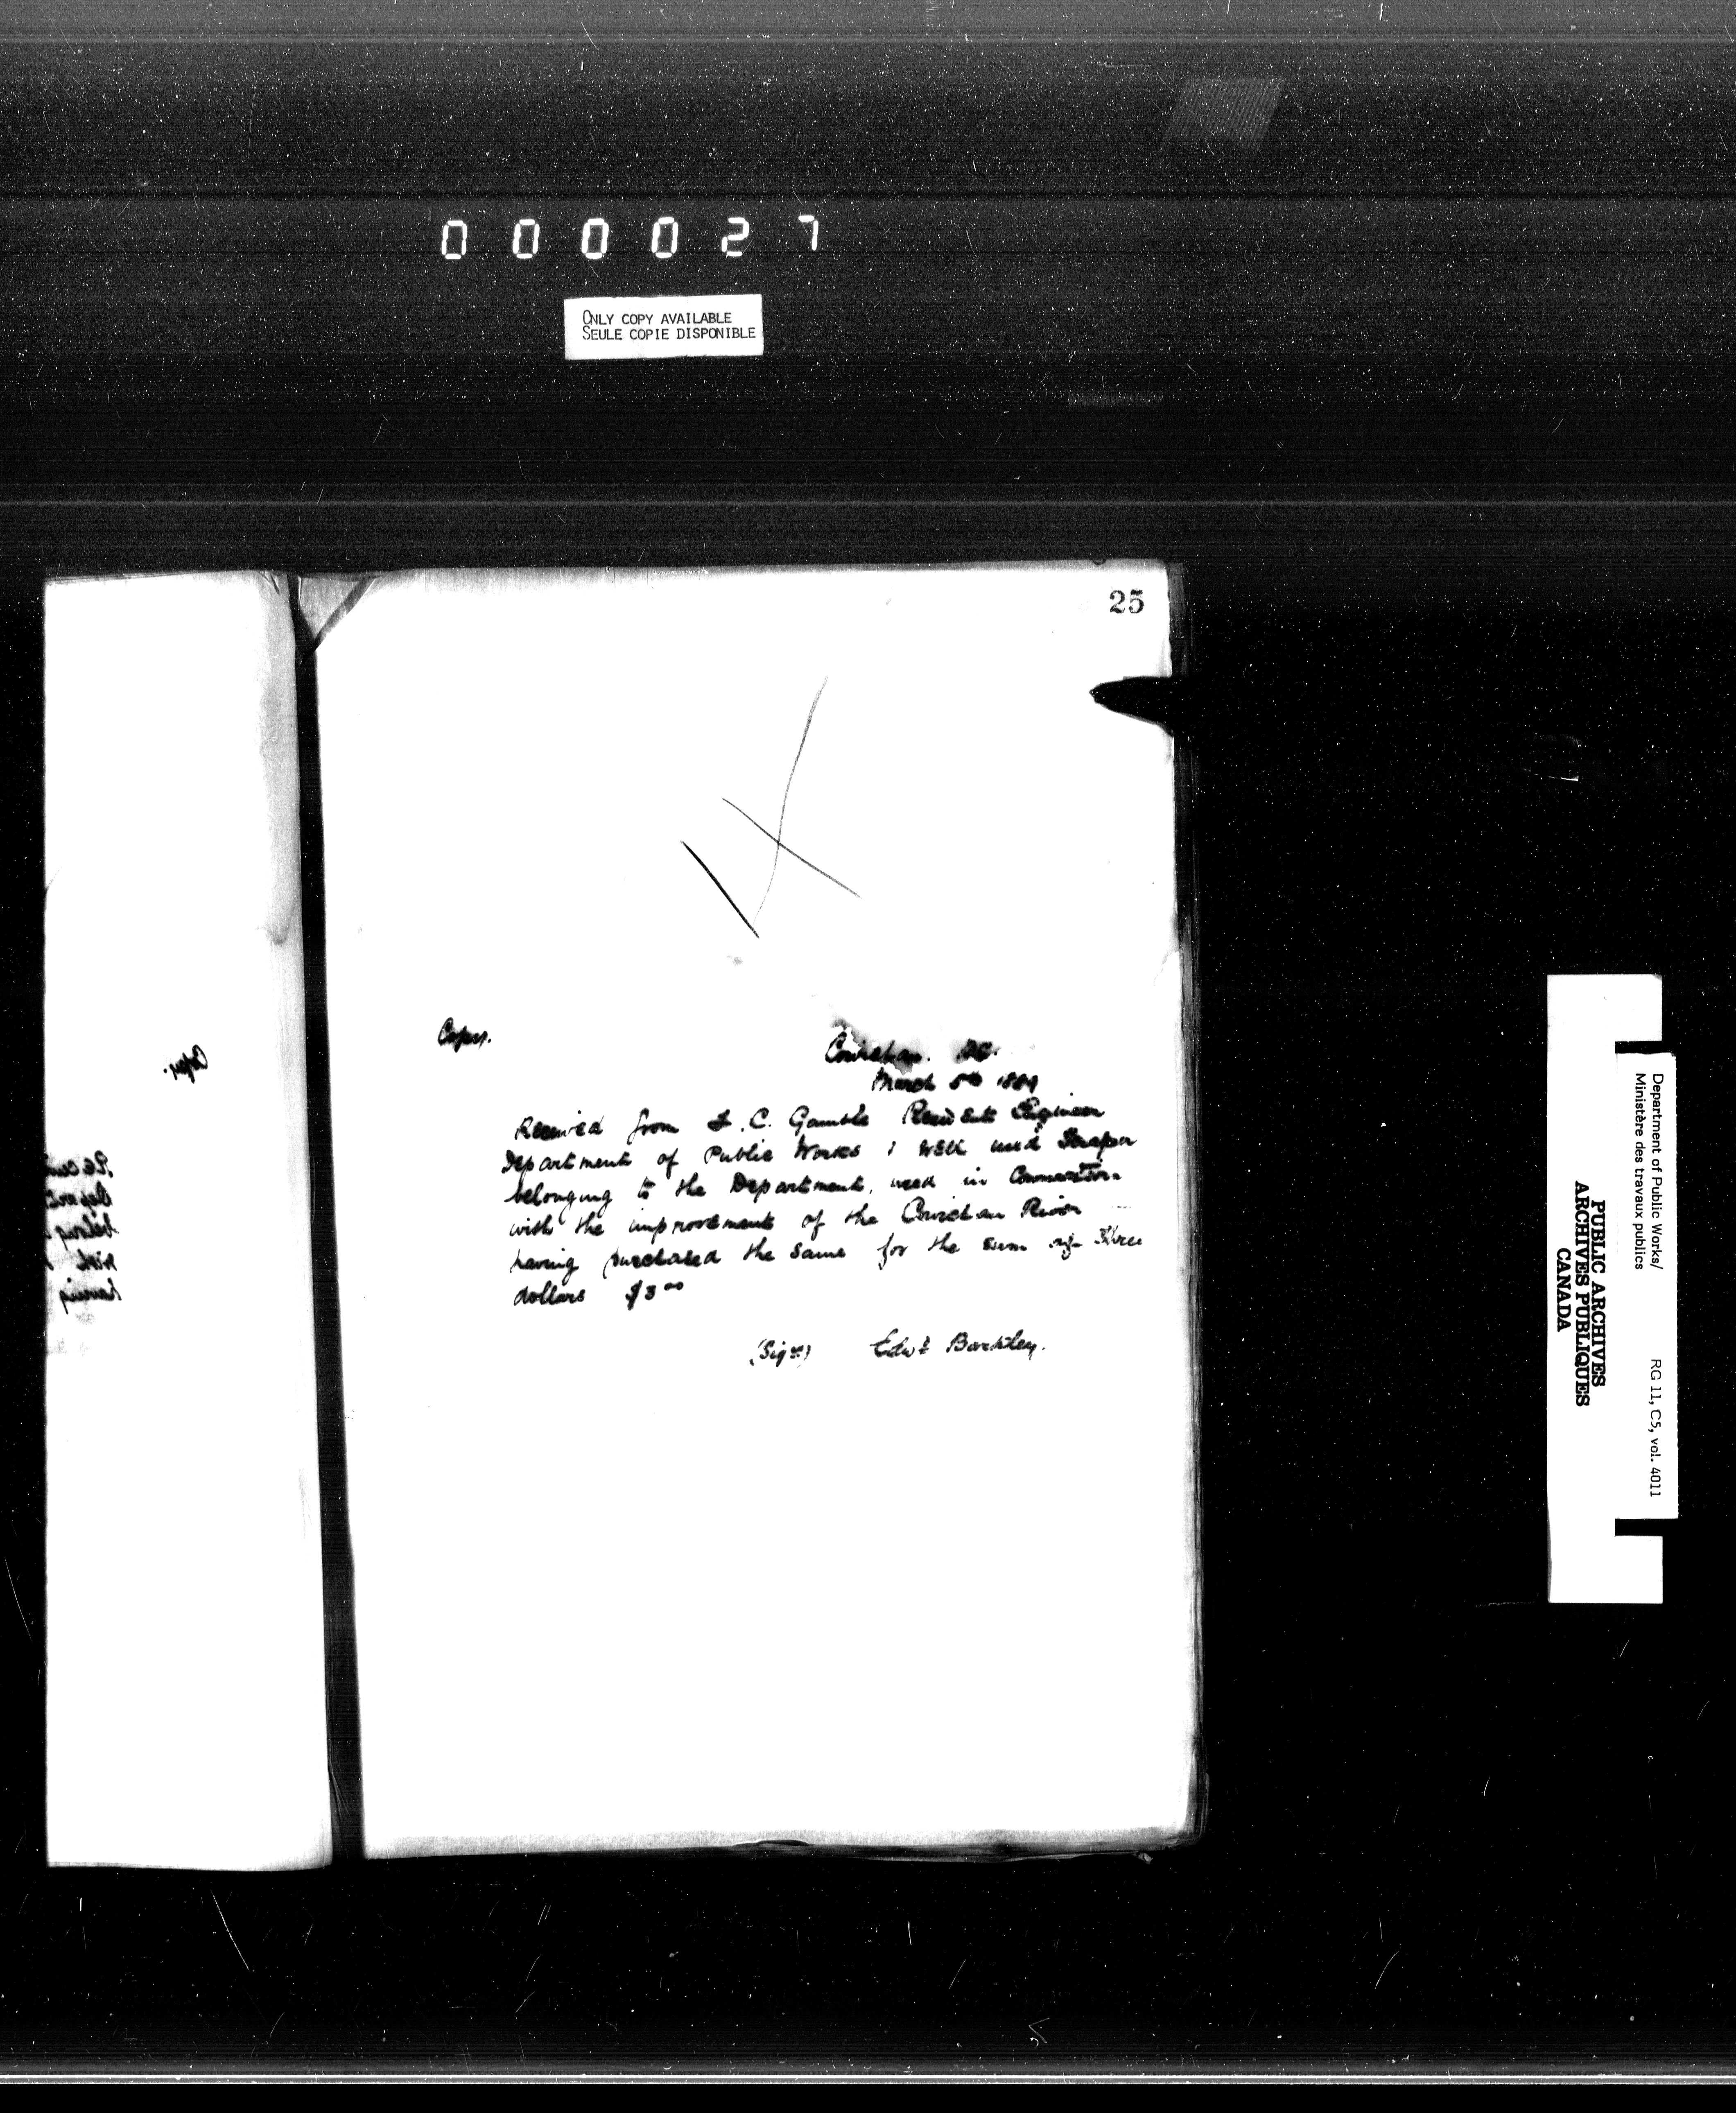 000027
ONLY COPY AVAILABLE
SEULE COPIE DISPONIBLE
25
Copy.
Cowichan. BC.
March 5th 1889
Received from F. C. Gamble Resident Engineer
Department of Public Works 1 well used Scraper
belonging to the Department, used in Connection
with the improvement of the Cowichan River
having purchased the same for the sum of three
dollars $3 00
(Sigd) Edwd Barkley.
Copy.
Department of Public Works/
Ministère des travaux publics
RG 11, C5, vol. 4011
PUBLIC ARCHIVES
ARCHIVES PUBLIQUES
CANADA